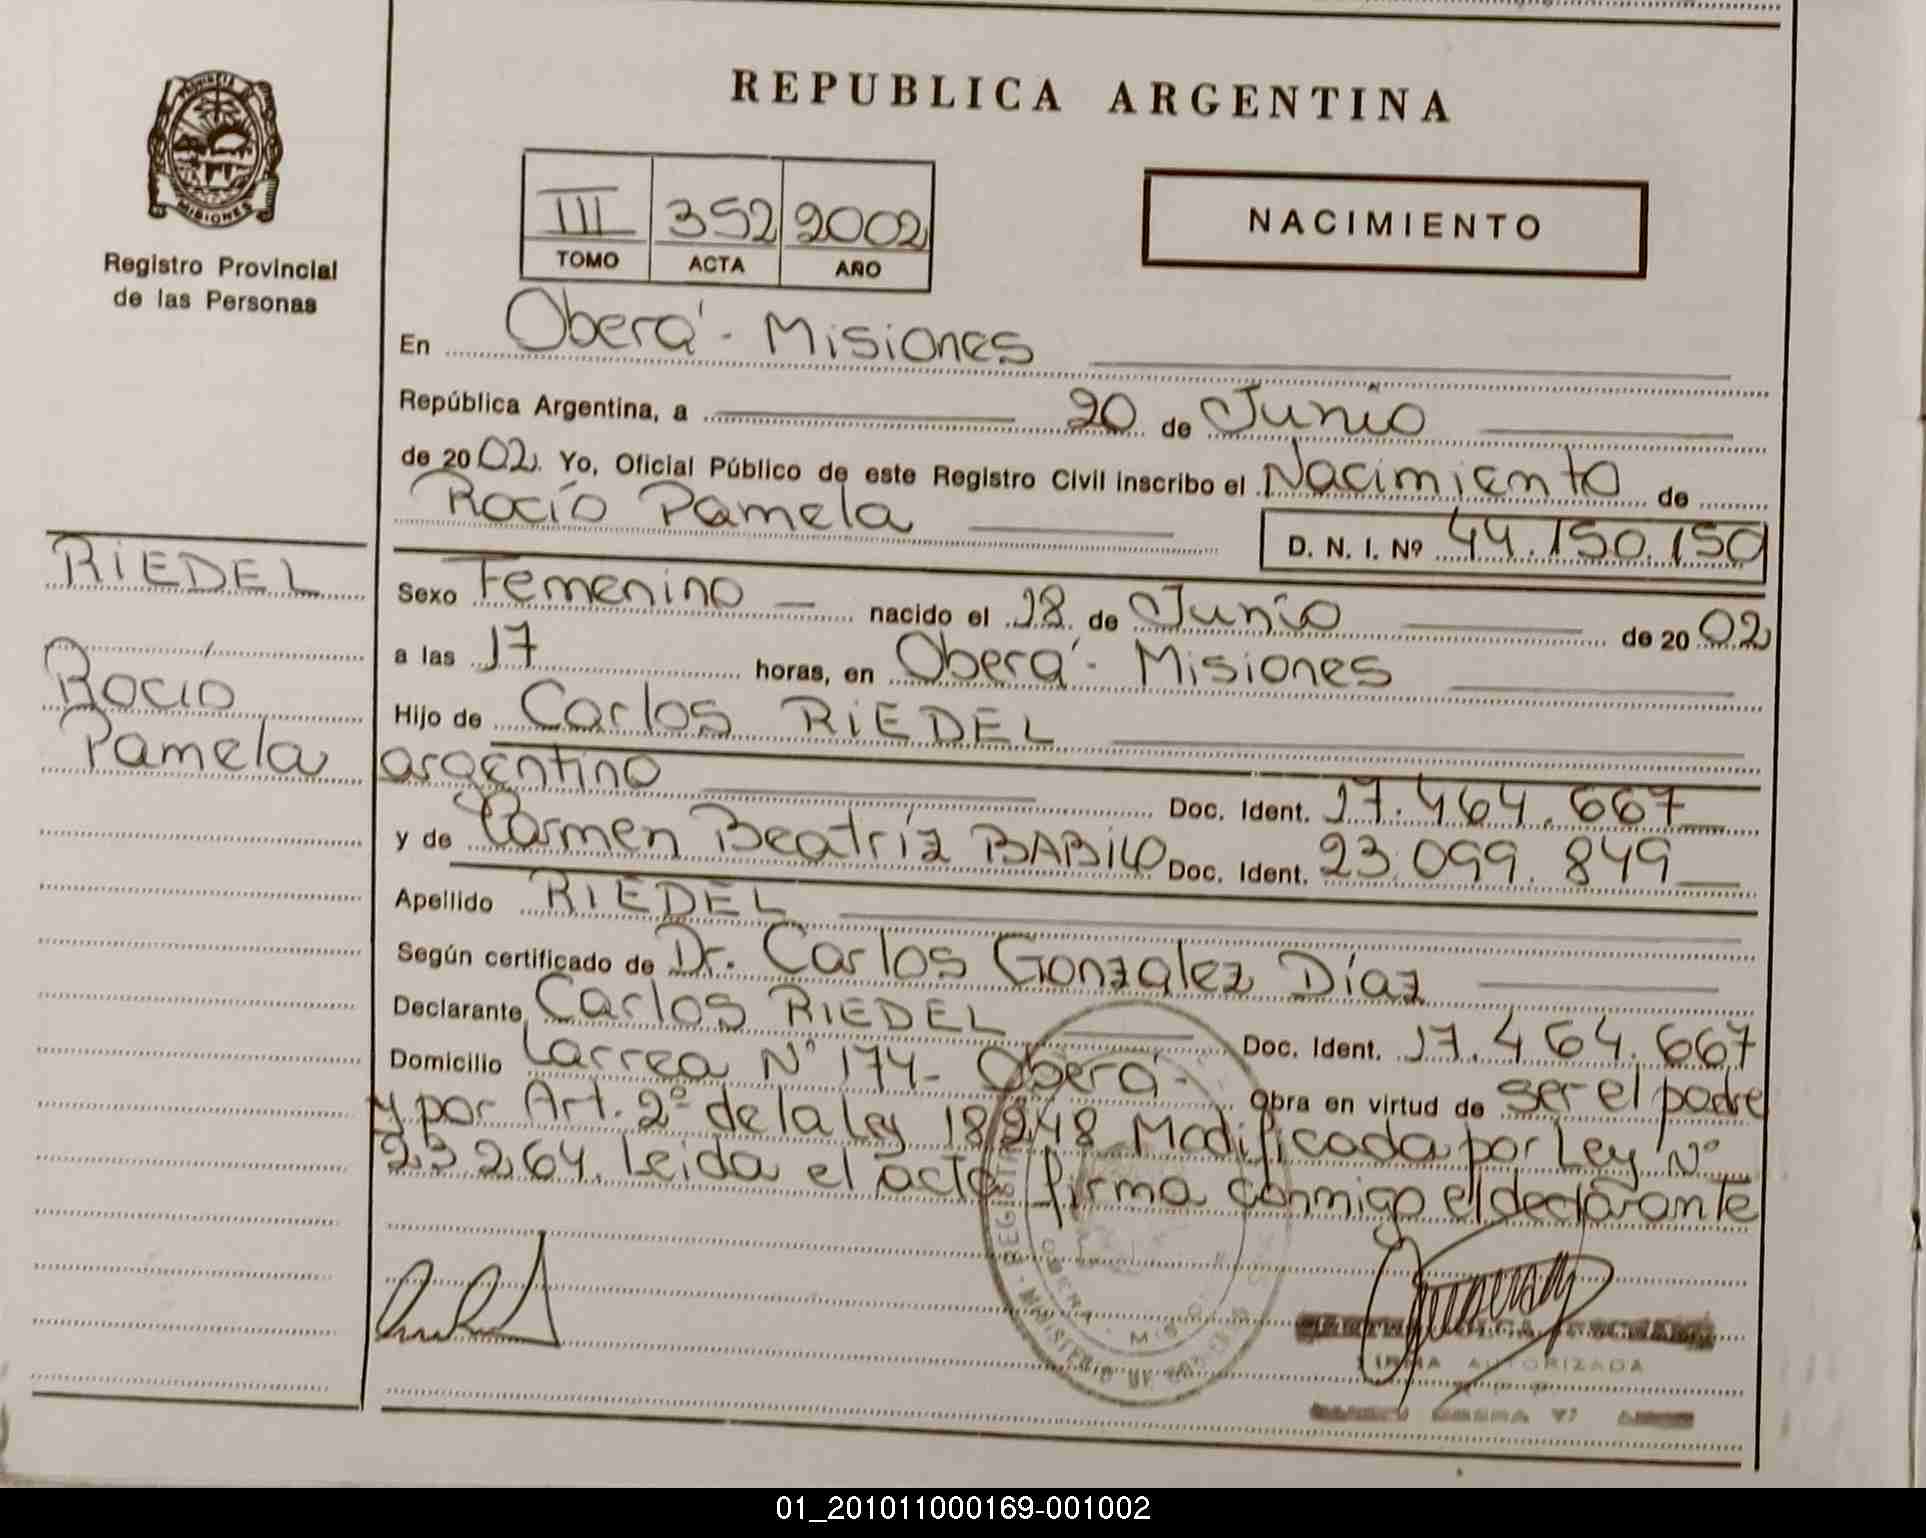 REPUBLICA ARGENTINA
PROVINCIA DE
MISIONES
Registro Provincial
de las Personas
III 352 2002
TOMO ACTA AÑO
NACIMIENTO
En Oberá - Misiones
República Argentina, a 20 de Junio
de 2002. Yo, Oficial Público de este Registro Civil inscribo el Nacimiento de
Rocío Pamela D. N. I. Nº 44.150.150
RIEDEL
Rocío
Pamela
Sexo Femenino nacido el 18 de Junio de 2002
a las 17 horas, en Oberá - Misiones
Hijo de Carlos RIEDEL
argentino Doc. Ident. 17.464.667
y de Carmen Beatríz BABILO Doc. Ident. 23.099.849
Apellido RIEDEL
Según certificado de Dr. Carlos Gonzalez Díaz
Declarante Carlos RIEDEL Doc. Ident. 17.464.667
Domicilio Larrea Nº 174 - Oberá - Obra en virtud de ser el padre
y por Art. 2º de la ley 18248 Modificada por Ley Nº
23264. Leida el acta firma conmigo el declarante
FIRMA AUTORIZADA
01_201011000169-001002